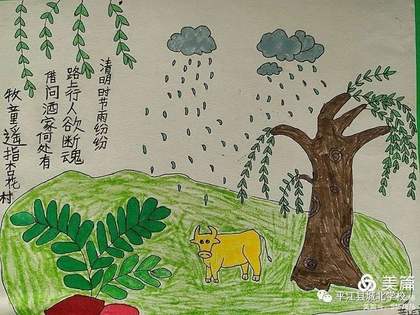 清明时节雨纷纷
路上行人欲断魂
借问酒家何处有
牧童遥指杏花村
美篇
平江县城北学校